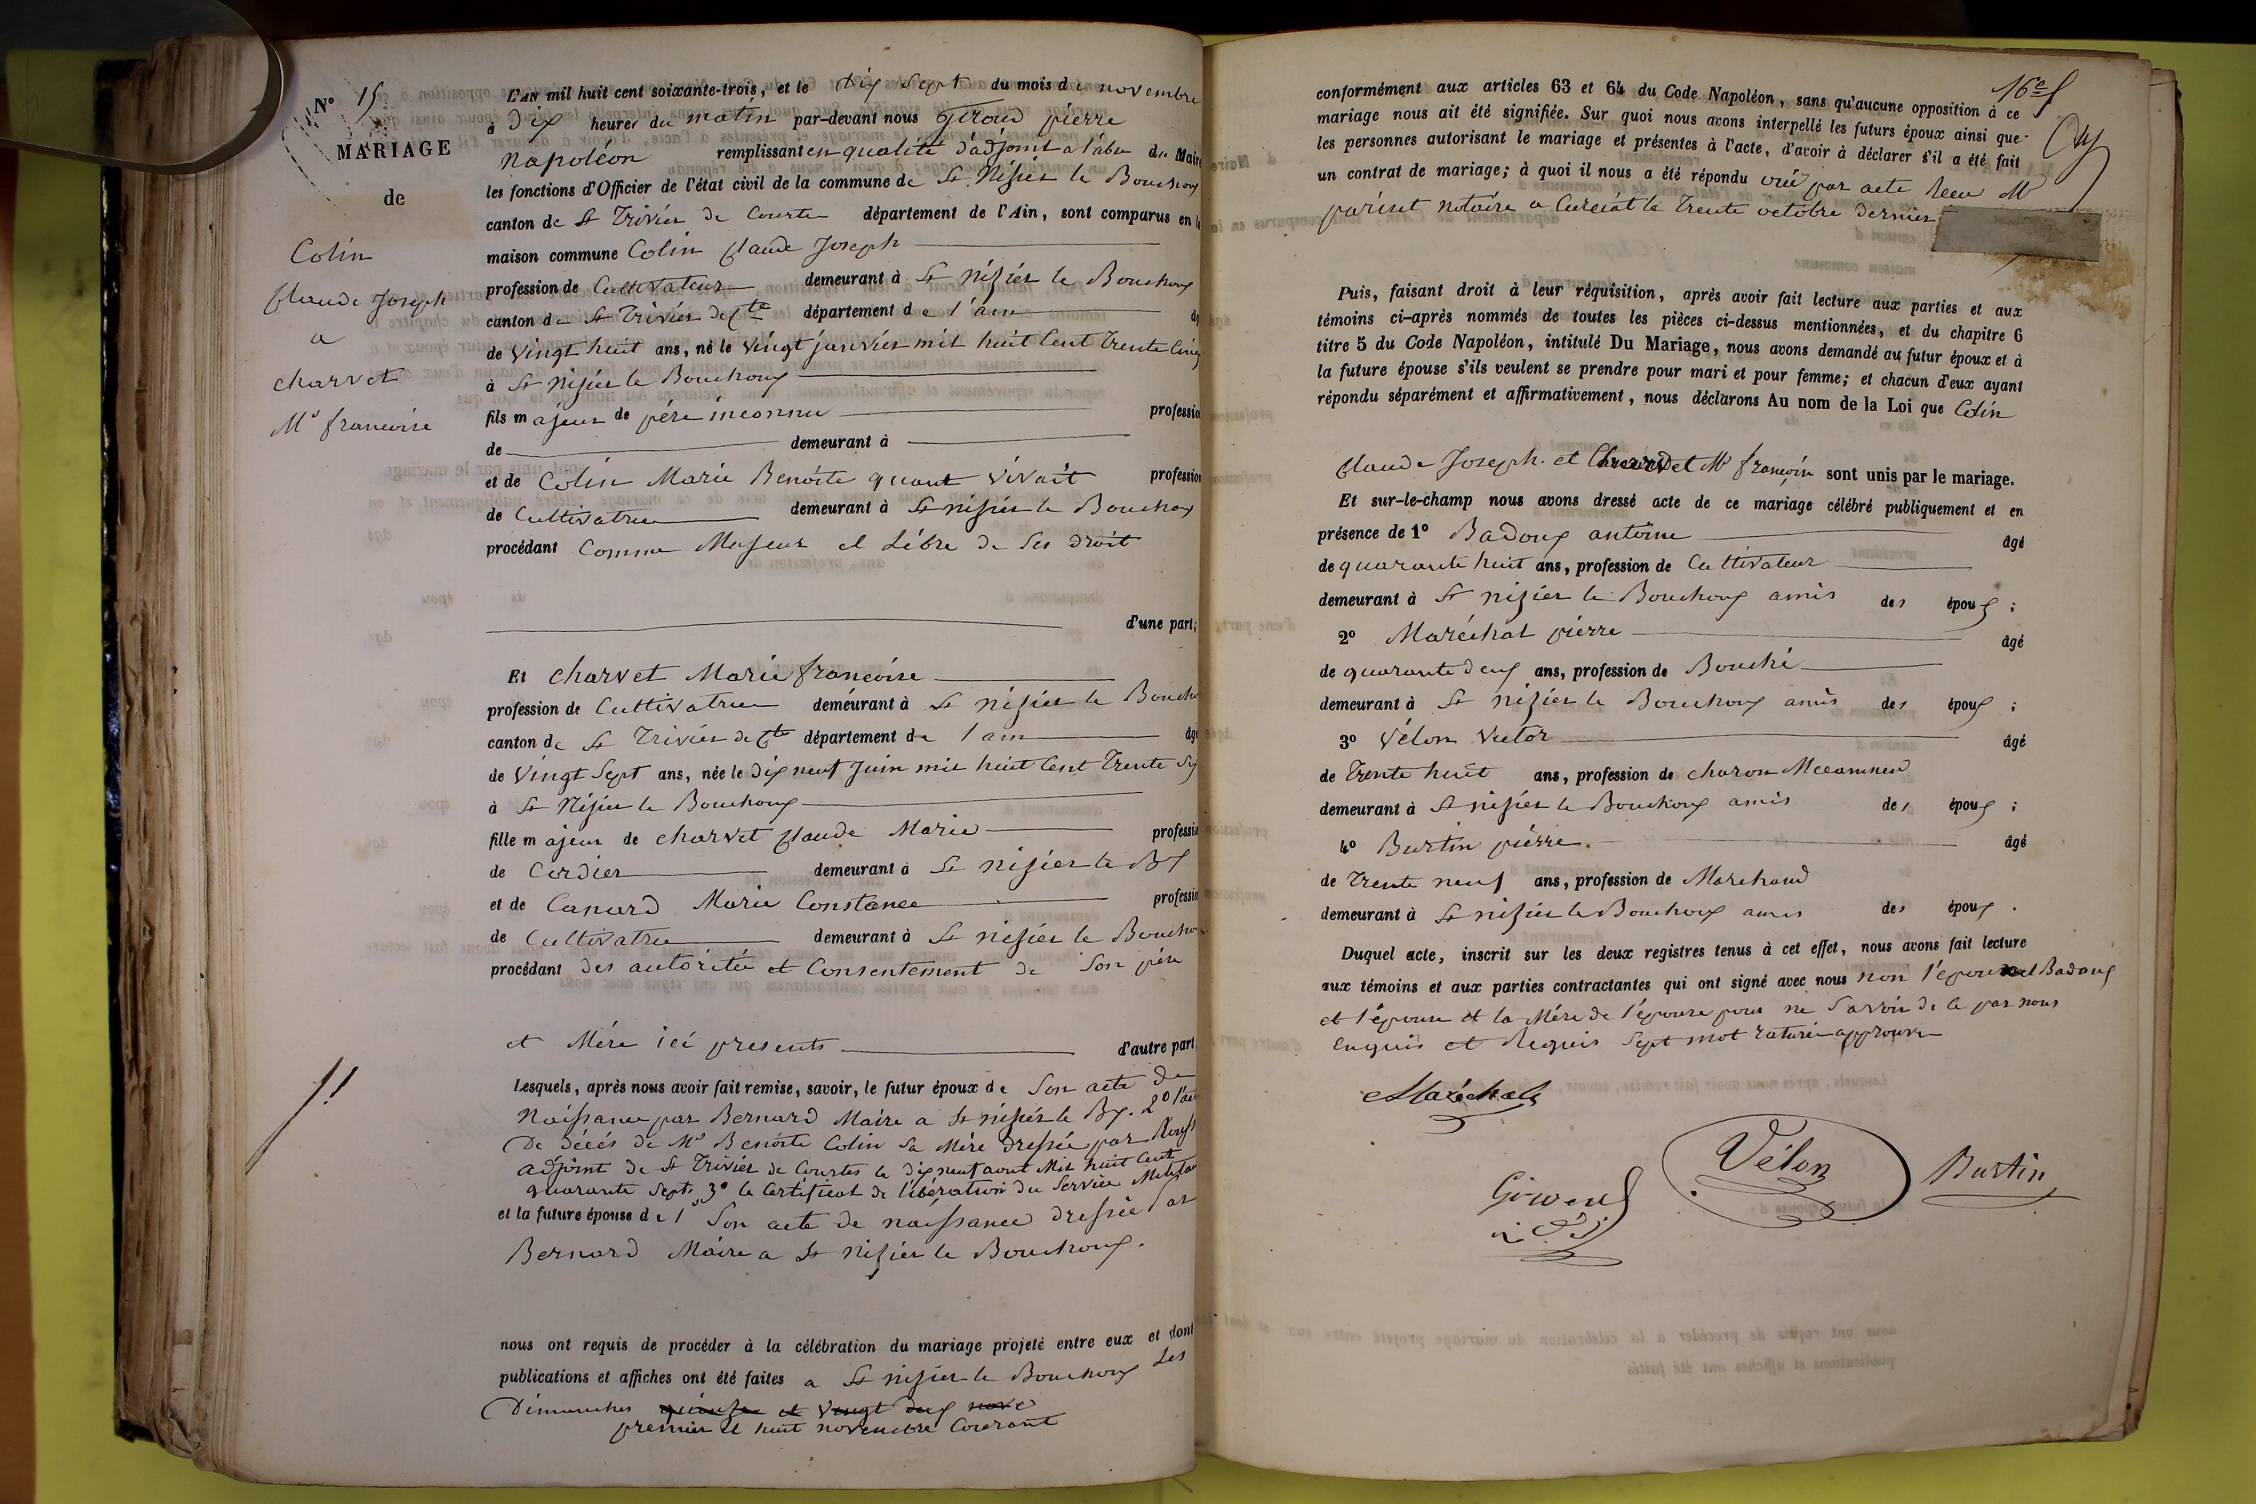 N° 15
MARIAGE
de
Colin
Claude Joseph
a
charvet
Mie francoise
L'AN mil huit cent soixante-trois, et le Dix Sept du mois de novembre
à Dix heures du matin par-devant nous Giroud pierre
Napoléon remplissant en qualité d'adjoint a l'abs du Maire
les fonctions d'Officier de l'état civil de la commune de St Nizier le Bouchoux
canton de St Trivier de Courtes département de l'Ain, sont comparus en la
maison commune Colin Claude Joseph
profession de Cultivateur demeurant à St Nizier le Bouchoux
canton de St Trivier de Cte département de l'ain âgé
de vingt huit ans, né le vingt janvier mil huit Cent Trente Cinq
à St nizier le Bouchoux
fils majeur de père inconnu profession
de demeurant à
et de Colin Marie Benoite quant vivait profession
de Cultivatrice demeurant à St nizier le Bouchoux
procédant Comme Majeur et Libre de Ses droit
d'une part;
Et charvet Marie francoise
profession de Cultivatrice demeurant à St nizier le Boucho
canton de St Trivier de Cte département de l'ain âgé
de vingt Sept ans, née le Dix neuf Juin mil huit Cent Trente Six
à St Nizier le Bouchoux
fille majeur de charvet Claude Marie profession
de Cordier demeurant à St nizier le Bx
et de Canard Marie Constance profession
de Cultivatrice demeurant à St nizier le Bouchoux
procédant des autorité et Consentement de Son père
et Mère ici presents d'autre part
Lesquels, après nous avoir fait remise, savoir, le futur époux de Son acte de
Naissance par Bernard Maire a St nizier le Bx. 2° l'acte
De décés de Mie Benoite Colin Sa Mère dressée par
adjoint de St Trivier de Courtes le dix neuf aout Mil huit Cent
quarante Sept 3° le Certificat de libération du Service Militaire
et la future épouse de 1° Son acte de naissance dressée par
Bernard Maire a St Nizier le Bouchoux.
nous ont requis de procéder à la célébration du mariage projeté entre eux et dont
publications et affiches ont été faites a St nizier le Bouchoux Les
Dimanches quinze et vingt deux nove
premier et huit novembre Courant
16e f
conformément aux articles 63 et 64 du Code Napoléon, sans qu'aucune opposition à ce
mariage nous ait été signifiée. Sur quoi nous avons interpellé les futurs époux ainsi que
les personnes autorisant le mariage et présentes à l'acte, d'avoir à déclarer s'il a été fait
un contrat de mariage; à quoi il nous a été répondu oui par acte Recu Me
parizet notaire a Curciat le Trente octobre dernier
Puis, faisant droit à leur réquisition, après avoir fait lecture aux parties et aux
témoins ci-après nommés de toutes les pièces ci-dessus mentionnées, et du chapitre 6
titre 5 du Code Napoléon, intitulé Du Mariage, nous avons demandé au futur époux et à
la future épouse s'ils veulent se prendre pour mari et pour femme; et chacun d'eux ayant
répondu séparément et affirmativement, nous déclarons Au nom de la Loi que Colin
Claude Joseph et Charvet Me françoise sont unis par le mariage.
Et sur-le-champ nous avons dressé acte de ce mariage célébré publiquement et en
présence de 1° Badoux antoine âgé
de quarante huit ans, profession de Cultivateur
demeurant à St nizier le Bouchoux amis des époux ;
2° Maréchal pierre âgé
de quarante deux ans, profession de Bouché
demeurant à St nizier le Bouchoux amis des époux ;
3° Vélon victor âgé
de Trente huit ans, profession de charon Mecanicien
demeurant à St nizier le Bouchoux amis des époux ;
4° Burtin pierre. âgé
de Trente neuf ans, profession de Marchand
demeurant à St nizier le Bouchoux amis des époux .
Duquel acte, inscrit sur les deux registres tenus à cet effet, nous avons fait lecture
aux témoins et aux parties contractantes qui ont signé avec nous non l'epoux et Badoux
et l'épouse et la Mère de l'épouse pour ne Savoir de ce par nous
Enquis et Requis Sept mot raturé approuvé
Maréchal
Giroud
Vélon
Burtin